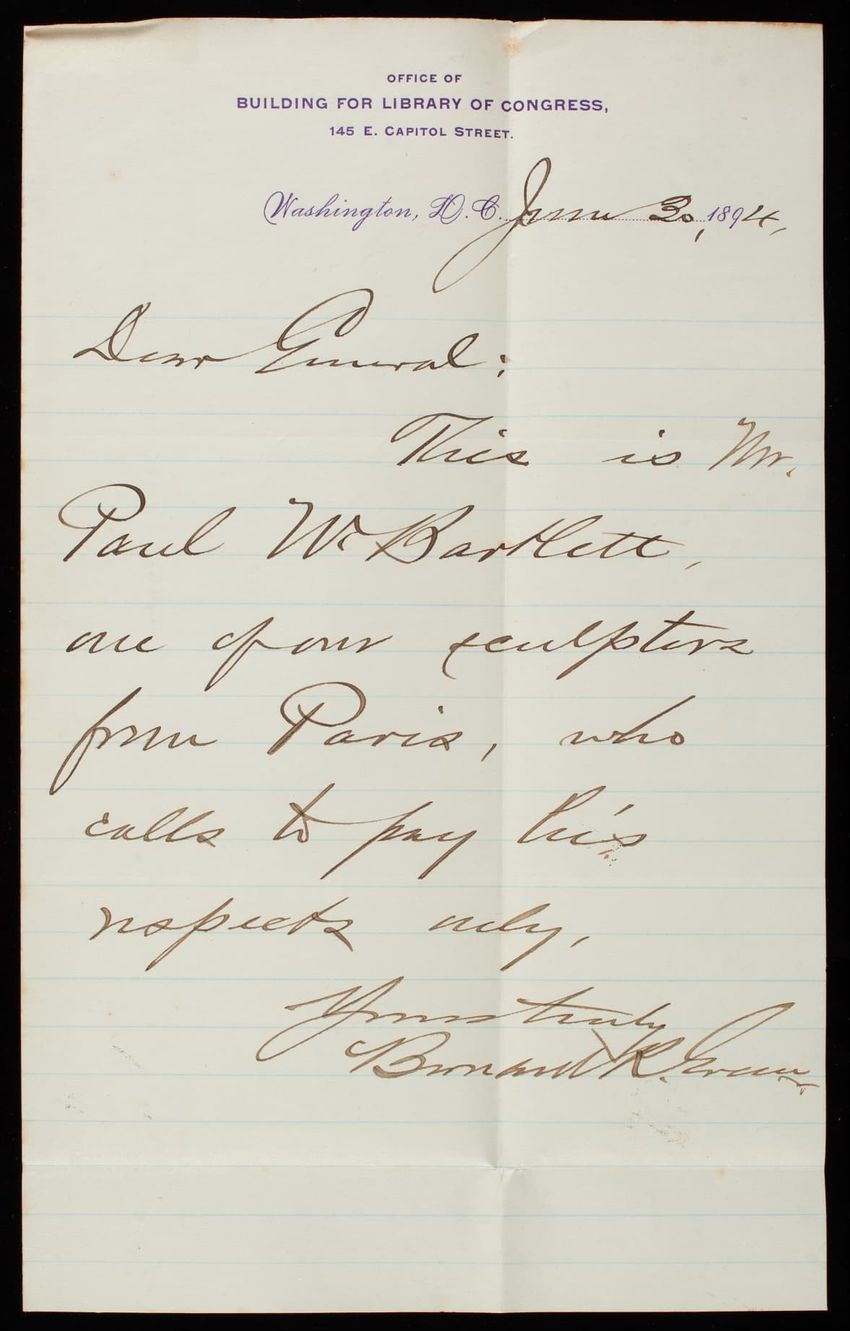 OFFICE OF
BUILDING FOR LIBRARY OF CONGRESS,
145 E. CAPITOL STREET.
Washington, D.C. June 30, 1894,
Dear General:
This is Mr.
Paul W. Bartlett,
one of our sculptors
from Paris, who
calls to pay his
respects only,
Yours truly
Bernard R. Green